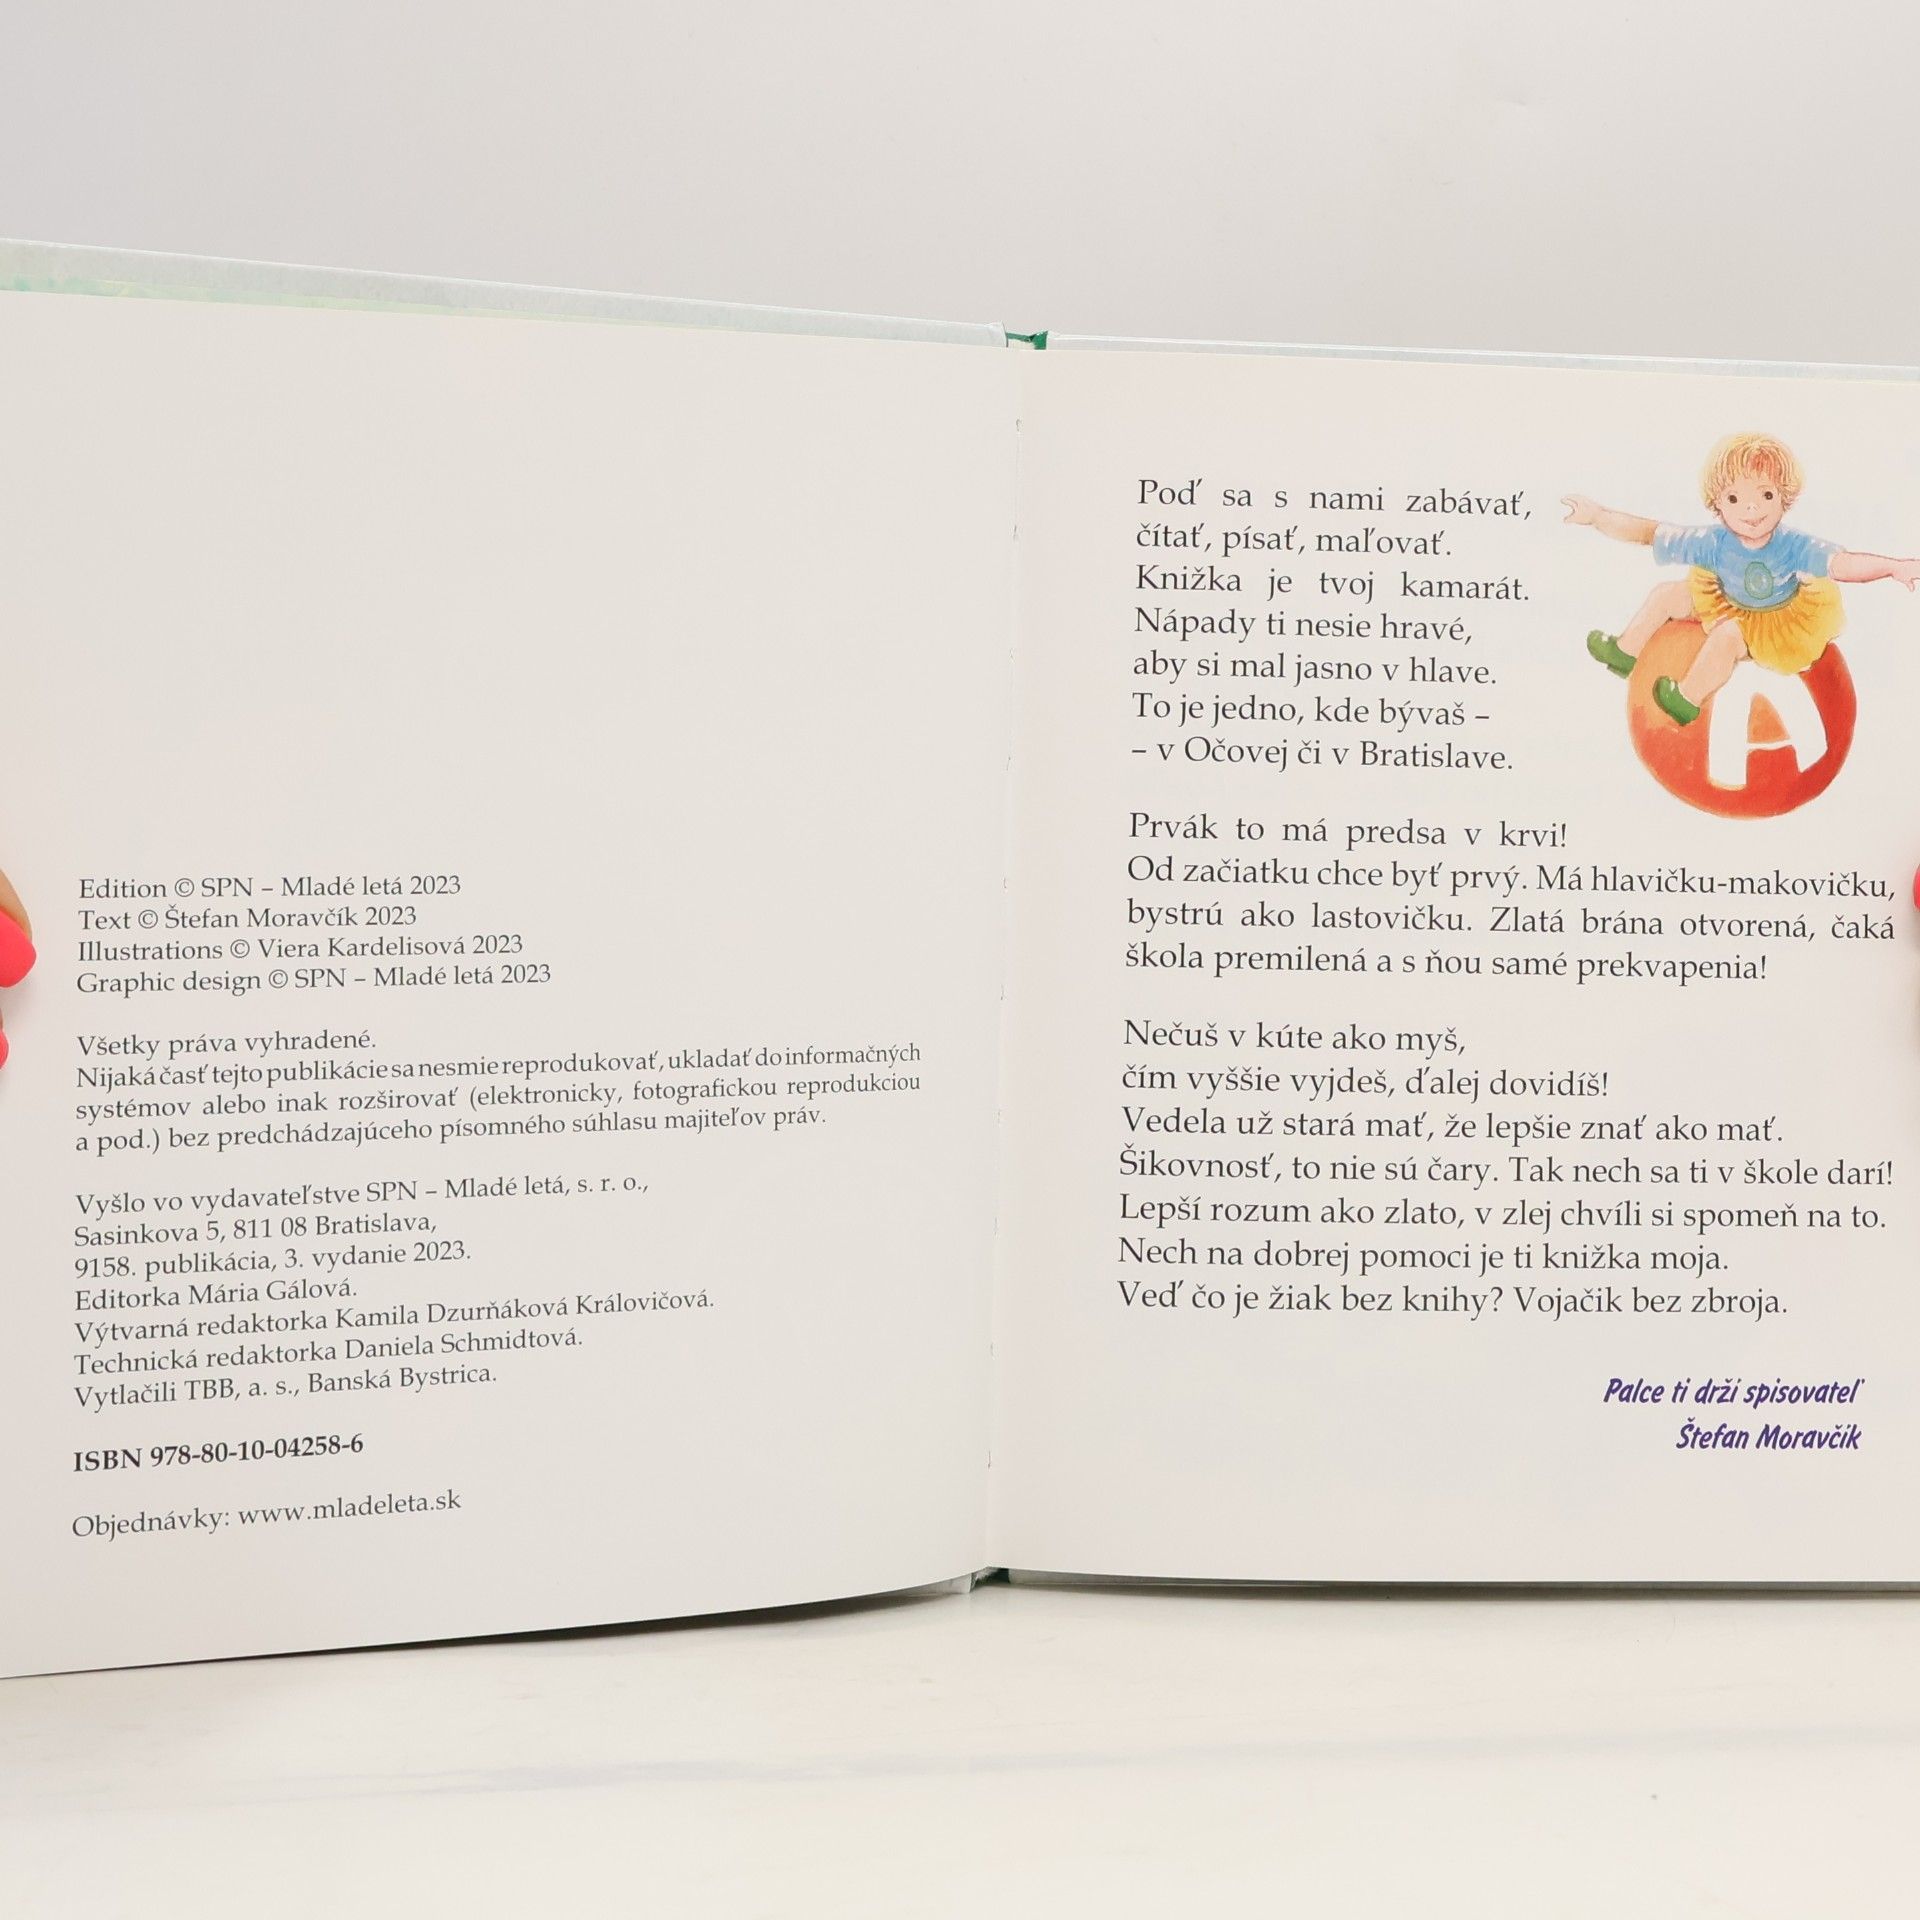 Edition © SPN – Mladé letá 2023
Text © Štefan Moravčík 2023
Illustrations © Viera Kardelisová 2023
Graphic design © SPN – Mladé letá 2023
Všetky práva vyhradené.
Nijaká časť tejto publikácie sa nesmie reprodukovať, ukladať do informačných
systémov alebo inak rozširovať (elektronicky, fotografickou reprodukciou
a pod.) bez predchádzajúceho písomného súhlasu majiteľov práv.
Vyšlo vo vydavateľstve SPN – Mladé letá, s. r. o.,
Sasinkova 5, 811 08 Bratislava,
9158. publikácia, 3. vydanie 2023.
Editorka Mária Gálová.
Výtvarná redaktorka Kamila Dzurňáková Královičová.
Technická redaktorka Daniela Schmidtová.
Vytlačili TBB, a. s., Banská Bystrica.
ISBN 978-80-10-04258-6
Objednávky: www.mladeleta.sk
Poď sa s nami zabávať,
čítať, písať, maľovať.
Knižka je tvoj kamarát.
Nápady ti nesie hravé,
aby si mal jasno v hlave.
To je jedno, kde bývaš –
– v Očovej či v Bratislave.
A
Prvák to má predsa v krvi!
Od začiatku chce byť prvý. Má hlavičku-makovičku,
bystrú ako lastovičku. Zlatá brána otvorená, čaká
škola premilená a s ňou samé prekvapenia!
Nečuš v kúte ako myš,
čím vyššie vyjdeš, ďalej dovidíš!
Vedela už stará mať, že lepšie znať ako mať.
Šikovnosť, to nie sú čary. Tak nech sa ti v škole darí!
Lepší rozum ako zlato, v zlej chvíli si spomeň na to.
Nech na dobrej pomoci je ti knižka moja.
Veď čo je žiak bez knihy? Vojačik bez zbroja.
Palce ti drží spisovateľ
Štefan Moravčík